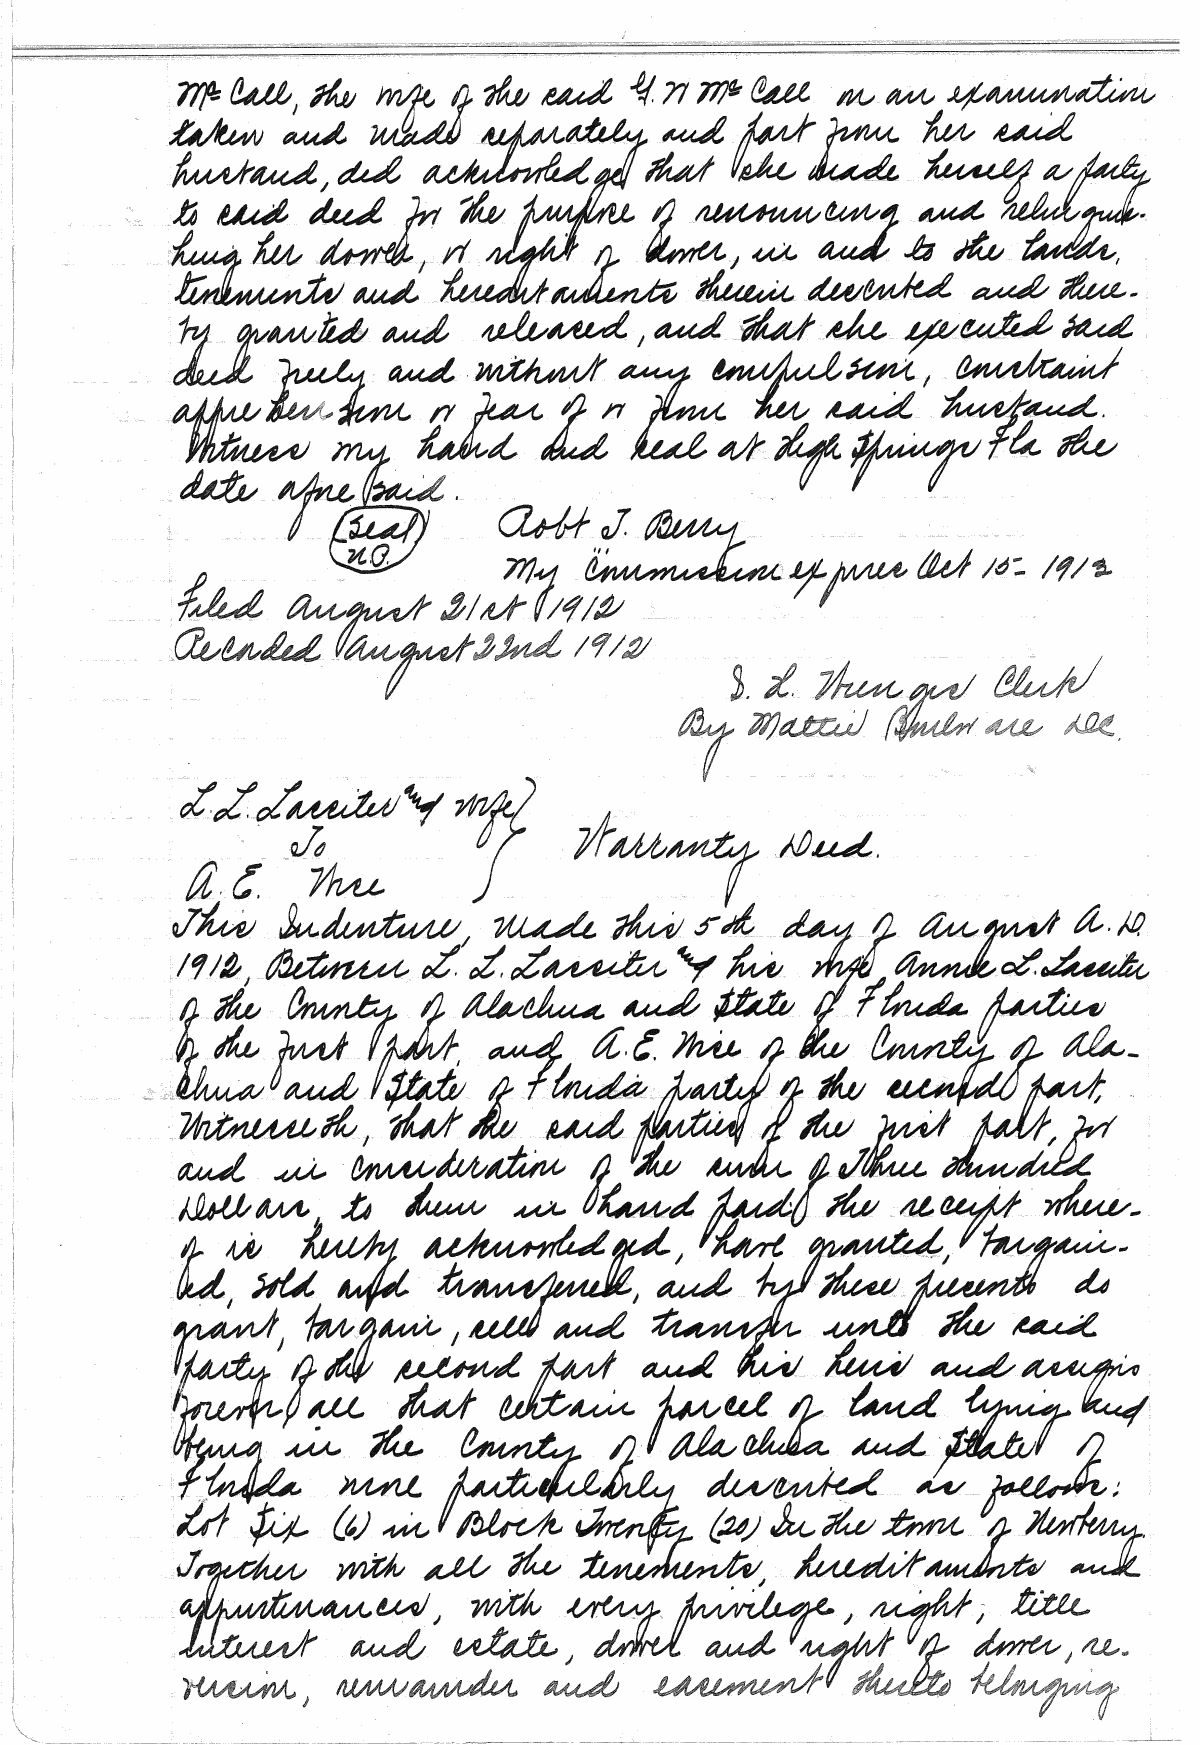 Mc Call, the wife of the said G. W Mc Call on an examination
taken and made separately and part from her said
husband, did acknowledge that she made herself a party
to said deed for the purpose of renouncing and relinquis-
hing her dower, or right of dower, in and to the lands,
tenements and heredutaments therein described and there-
by granted and released, and that she executed said
deed freely and without any compulsion, constraint
apprehension or fear of or from her said husband.
Witness my hand and seal at High Springs Fla the
date afore said.
(Seal N.P.) Robt T. Berry
My Commission expires Oct 15- 1913
Filed August 21st 1912
Recorded August 22nd 1912
S. H. Wienges Clerk
By Mattie Boulware D.C.
L. L. Lassiter and wife
To
Warranty Deed.
A. E. Wise
This Indenture, Made this 5th day of August A. D.
1912, Between L. L. Lassiter and his wife Annie L. Lassiter
of the County of Alachua and State of Florida parties
of the first part, and A. E. Wise of the County of Ala-
chua and State of Florida party of the second part,
Witnesseth, that the said parties of the first part, for
and in consideration of the sum of Three Hundred
Dollars, to them in hand paid, the receipt where-
of is hereby acknowledged, have granted, bargain-
ed, sold and transferred, and by these presents do
grant, bargain, sell and transfer unto the said
party of the second part and his heirs and assigns
forever, all that certain parcel of land lying and
being in the County of Alachua and State of
Florida more particularly described as follows:
Lot Six (6) in Block Twenty (20) In the town of Newberry.
Together with all the tenements, hereditaments and
appurtenances, with every privilege, right, title
interest and estate, dower and right of dower, re-
version, remainder and easement thereto belonging